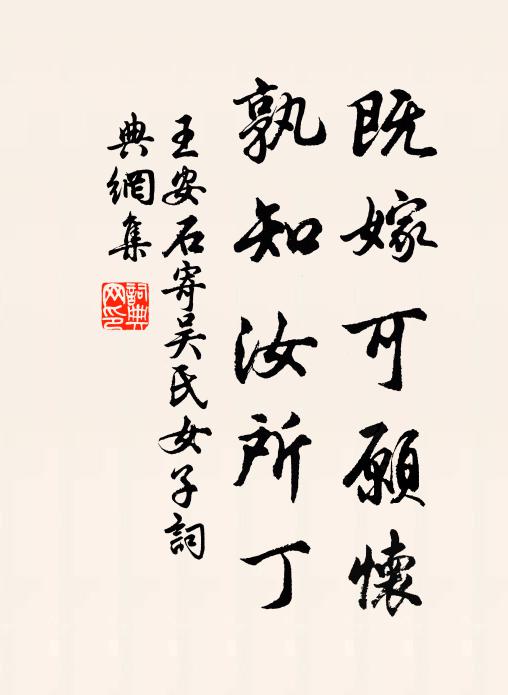 既嫁可願懷
孰知汝所丁
王安石寄吴氏女子詞
典網集
詞典网印